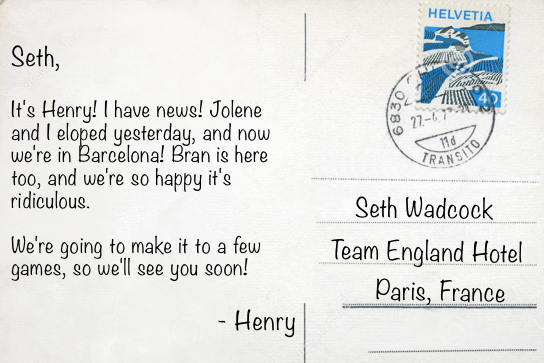 Seth,
It's Henry! I have news! Jolene
and I eloped yesterday, and now
we're in Barcelona! Bran is here
too, and we're so happy it's
ridiculous.
We're going to make it to a few
games, so we'll see you soon!
- Henry
HELVETIA
40
6830
27.-6.7
11d
TRANSITO
Seth Wadcock
Team England Hotel
Paris, France